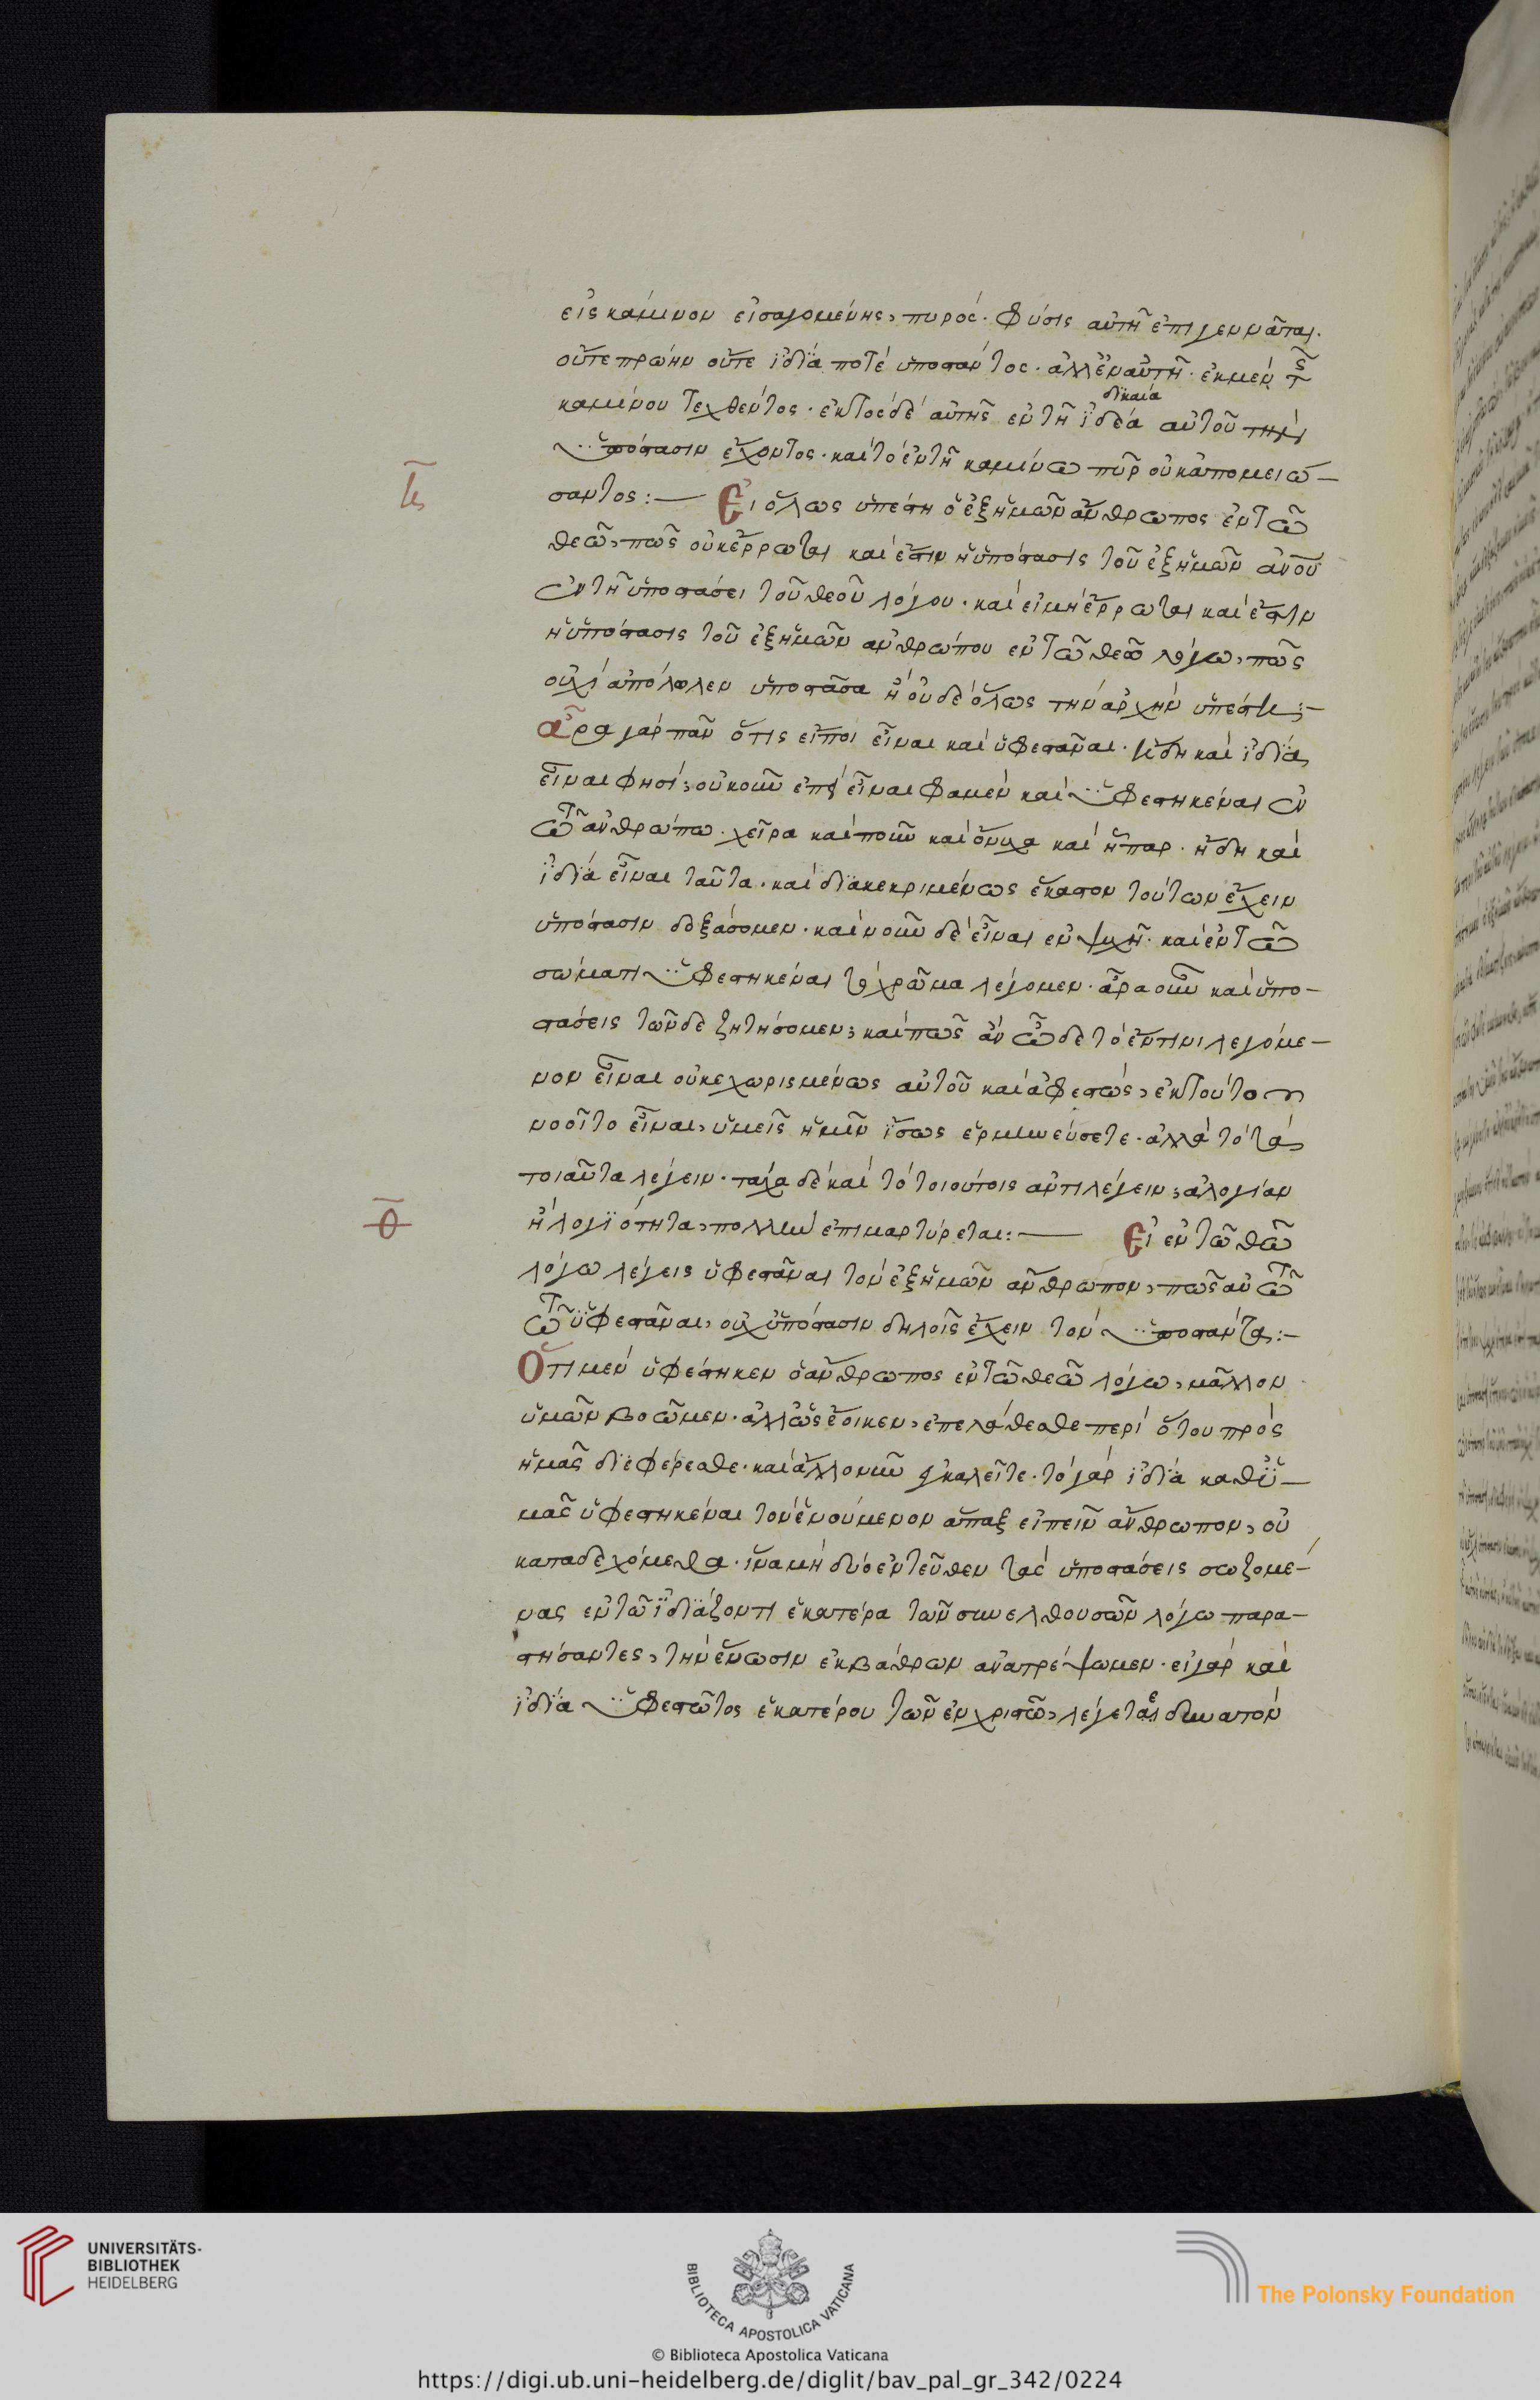 εἰς κάμινον εἰσαγομένης, πυρός. φύσις αὐτῆ ἐπιγεννᾶται.
οὔτε πρώην οὔτε ἰδία ποτὲ ὑποστάντος. ἀλλ' ἐν αὐτῆ. ἐκ μὲν τῆς
καμίνου τεχθέντος. ἐκτὸς δὲ αὐτῆς ἐν τῆ ἰδέα αὐτοῦ τὴν
δικαία
ὑπόστασιν ἔχοντος. καὶ τὸ ἐν τῆ καμίνω πῦρ οὐκ ἀπομειώ-
σαντος:— Εἰ ὅλως ὑπέστη ὁ ἐξ ἡμῶν ἄνθρωπος ἐν τῶ
η
θεῶ, πῶς οὐκ ἔρρωται καὶ ἔστιν ἡ ὑπόστασις τοῦ ἐξ ἡμῶν ἀνου
ἐν τῆ ὑποστάσει τοῦ θεοῦ λόγου. καὶ εἰ μὴ ἔρρωται καὶ ἔστιν
ἡ ὑπόστασις τοῦ ἐξ ἡμῶν ἀνθρώπου ἐν τῶ θεῶ λόγω, πῶς
οὐχὶ ἀπόλωλεν ὑποστᾶσα ἢ οὐδὲ ὅλως τὴν ἀρχὴν ὑπέστη;—
Ἆρα γὰρ πᾶν ὅ τις εἴποι εἶναι καὶ ὑφεστάναι. ἤδη καὶ ἰδία
εἶναι φησί; οὐκοῦν ἐπεὶ εἶναι φαμὲν καὶ ὑφεστηκέναι ἐν
τῶ ἀνθρώπω. χεῖρα καὶ ποῦν καὶ ὄνυχα καὶ ἧπαρ. ἤδη καὶ
ἰδία εἶναι ταῦτα. καὶ διακεκριμένως ἕκαστον τούτων ἔχειν
ὑπόστασιν δοξάσομεν. καὶ νοῦν δὲ εἶναι ἐν ψυχῆ. καὶ ἐν τῶ
σώματι ὑφεστηκέναι τὸ χρῶμα λέγομεν. ἆρα οὖν καὶ ὑπο-
στάσεις τῶνδε ζητήσομεν; καὶ πῶς ἂν ὧδε τὸ ἔν τινι λεγόμε-
νον εἶναι οὐ κεχωρισμένως αὐτοῦ καὶ ἀφεστώς, ἐκ τούτου
νοοῖτο εἶναι, ὑμεῖς ἡμῖν ἴσως ἑρμηνεύσετε. ἀλλὰ τὸ τὰ
τοιαῦτα λέγειν. τάχα δὲ καὶ τὸ τοιούτοις ἀντιλέγειν; ἀλογίαν
ἢ λογιότητα, πολλὴν ἐπιμαρτύρεται:— Εἰ ἐν τῶ θῶ
θ
λόγω λέγεις ὑφεστάναι τὸν ἐξ ἡμῶν ἄνθρωπον, πῶς αὐτῶ
τῶ ὑφεστάναι, οὐχ ὑπόστασιν δηλοῖς ἔχειν τὸν ὑποστάντα:—
Ὅτι μὲν ὑφέστηκεν ὁ ἄνθρωπος ἐν τῶ θεῶ λόγω, μᾶλλον
ὑμῶν βοῶμεν. ἀλλ' ὡς ἔοικεν, ἐπελάθεσθε περὶ ὅτου πρὸς
ἡμᾶς διεφέρεσθε. καὶ ἄλλο νῦν ἐκαλεῖτε. τὸ γὰρ ἰδία καθ' ὑ-
μᾶς ὑφεστηκέναι τὸν ἑνούμενον ἅπαξ εἰπεῖν ἄνθρωπον, οὐ
καταδεχόμεθα. ἵνα μὴ δύο ἐντεῦθεν τὰς ὑποστάσεις σωζομέ-
νας ἐν τῶ ἰδιάζοντι ἑκατέρα τῶν συνελθουσῶν λόγω παρα-
στήσαντες, τὴν ἕνωσιν ἐκ βάθρων ἀνατρέψωμεν. εἰ γὰρ καὶ
ἰδία ὑφεστῶτος ἑκατέρου τῶν ἐν χριστῶ, λέγεται δυνατὸν
UNIVERSITÄTS-
BIBLIOTHEK
HEIDELBERG
BIBLIOTECA APOSTOLICA VATICANA
The Polonsky Foundation
© Biblioteca Apostolica Vaticana
https://digi.ub.uni-heidelberg.de/diglit/bav_pal_gr_342/0224